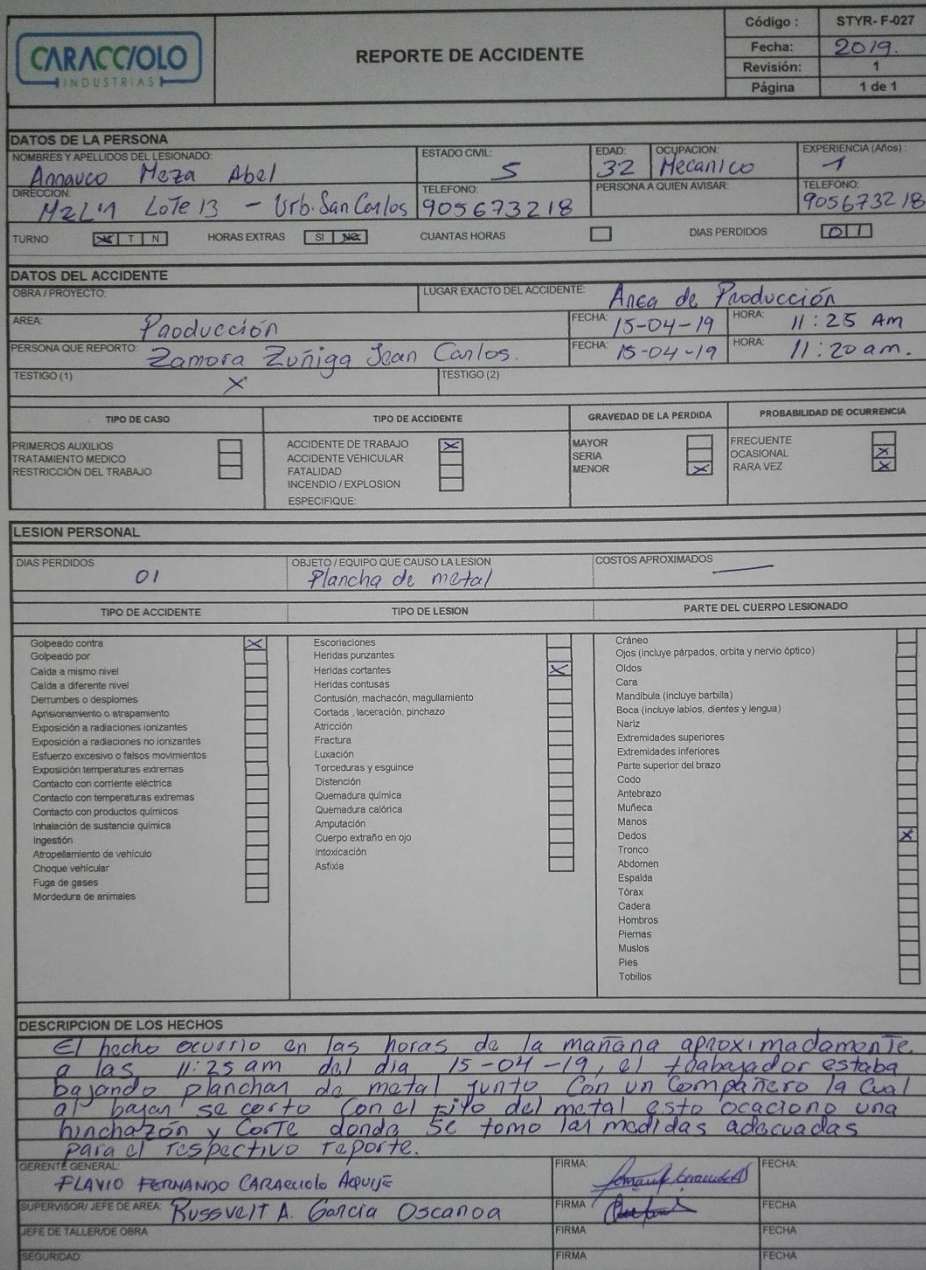 CARACCIOLO
INDUSTRIAS
REPORTE DE ACCIDENTE
Código : STYR- F-027
Fecha: 2019.
Revisión: 1
Página 1 de 1
DATOS DE LA PERSONA
NOMBRES Y APELLIDOS DEL LESIONADO: ESTADO CIVIL: EDAD: OCUPACION: EXPERIENCIA (Años) :
Annauco Meza Abel S 32 Mecanico 1
DIRECCION: TELEFONO: PERSONA A QUIEN AVISAR: TELEFONO:
MzL'1 LoTe 13 - Urb. San Carlos 905673218 905673218
TURNO T N HORAS EXTRAS SI NO CUANTAS HORAS DIAS PERDIDOS 0 1
DATOS DEL ACCIDENTE
OBRA / PROYECTO: LUGAR EXACTO DEL ACCIDENTE: Area de Producción
AREA: Producción FECHA: 15-04-19 HORA: 11:25 Am
PERSONA QUE REPORTO: Zamora Zuñiga Jean Carlos. FECHA: 15-04-19 HORA: 11:20 am.
TESTIGO (1) X TESTIGO (2)
TIPO DE CASO TIPO DE ACCIDENTE GRAVEDAD DE LA PERDIDA PROBABILIDAD DE OCURRENCIA
PRIMEROS AUXILIOS ACCIDENTE DE TRABAJO X MAYOR FRECUENTE
TRATAMIENTO MEDICO ACCIDENTE VEHICULAR SERIA OCASIONAL X
RESTRICCIÓN DEL TRABAJO FATALIDAD MENOR X RARA VEZ X
INCENDIO / EXPLOSION
ESPECIFIQUE:
LESION PERSONAL
DIAS PERDIDOS OBJETO / EQUIPO QUE CAUSO LA LESION COSTOS APROXIMADOS
01 Plancha de metal —
TIPO DE ACCIDENTE TIPO DE LESION PARTE DEL CUERPO LESIONADO
Golpeado contra X
Golpeado por
Caída a mismo nivel
Caída a diferente nivel
Derrumbes o desplomes
Aprisionamiento o atrapamiento
Exposición a radiaciones ionizantes
Exposición a radiaciones no ionizantes
Esfuerzo excesivo o falsos movimientos
Exposición temperaturas extremas
Contacto con corriente eléctrica
Contacto con temperaturas extremas
Contacto con productos químicos
Inhalación de sustancia química
Ingestión
Atropellamiento de vehículo
Choque vehicular
Fuga de gases
Mordedura de animales
Escoriaciones
Heridas punzantes
Heridas cortantes X
Heridas contusas
Contusión, machacón, magullamiento
Cortada , laceración, pinchazo
Atricción
Fractura
Luxación
Torceduras y esguince
Distención
Quemadura química
Quemadura calórica
Amputación
Cuerpo extraño en ojo
Intoxicación
Asfixia
Cráneo
Ojos (incluye párpados, orbita y nervio óptico)
Oídos
Cara
Mandíbula (incluye barbilla)
Boca (incluye labios, dientes y lengua)
Nariz
Extremidades superiores
Extremidades inferiores
Parte superior del brazo
Codo
Antebrazo
Muñeca
Manos
Dedos X
Tronco
Abdomen
Espalda
Tórax
Cadera
Hombros
Piernas
Muslos
Pies
Tobillos
DESCRIPCION DE LOS HECHOS
El hecho ocurrio en las horas de la mañana aproximadamente
a las 11:25 am del dia 15-04-19, el trabajador estaba
bajando planchas de metal junto Con un Compañero la Cual
al bajar se corto Con el Filo del metal esto ocaciono una
hinchazón y Corte donde Se tomo las medidas adecuadas
para el respectivo reporte.
GERENTE GENERAL: FIRMA: FECHA:
FLAVIO FERNANDO CARACCIOLO AQUIJE
SUPERVISOR/ JEFE DE AREA: Russvelt A. Garcia Oscanoa FIRMA FECHA
JEFE DE TALLER/DE OBRA FIRMA FECHA
SEGURIDAD: FIRMA FECHA